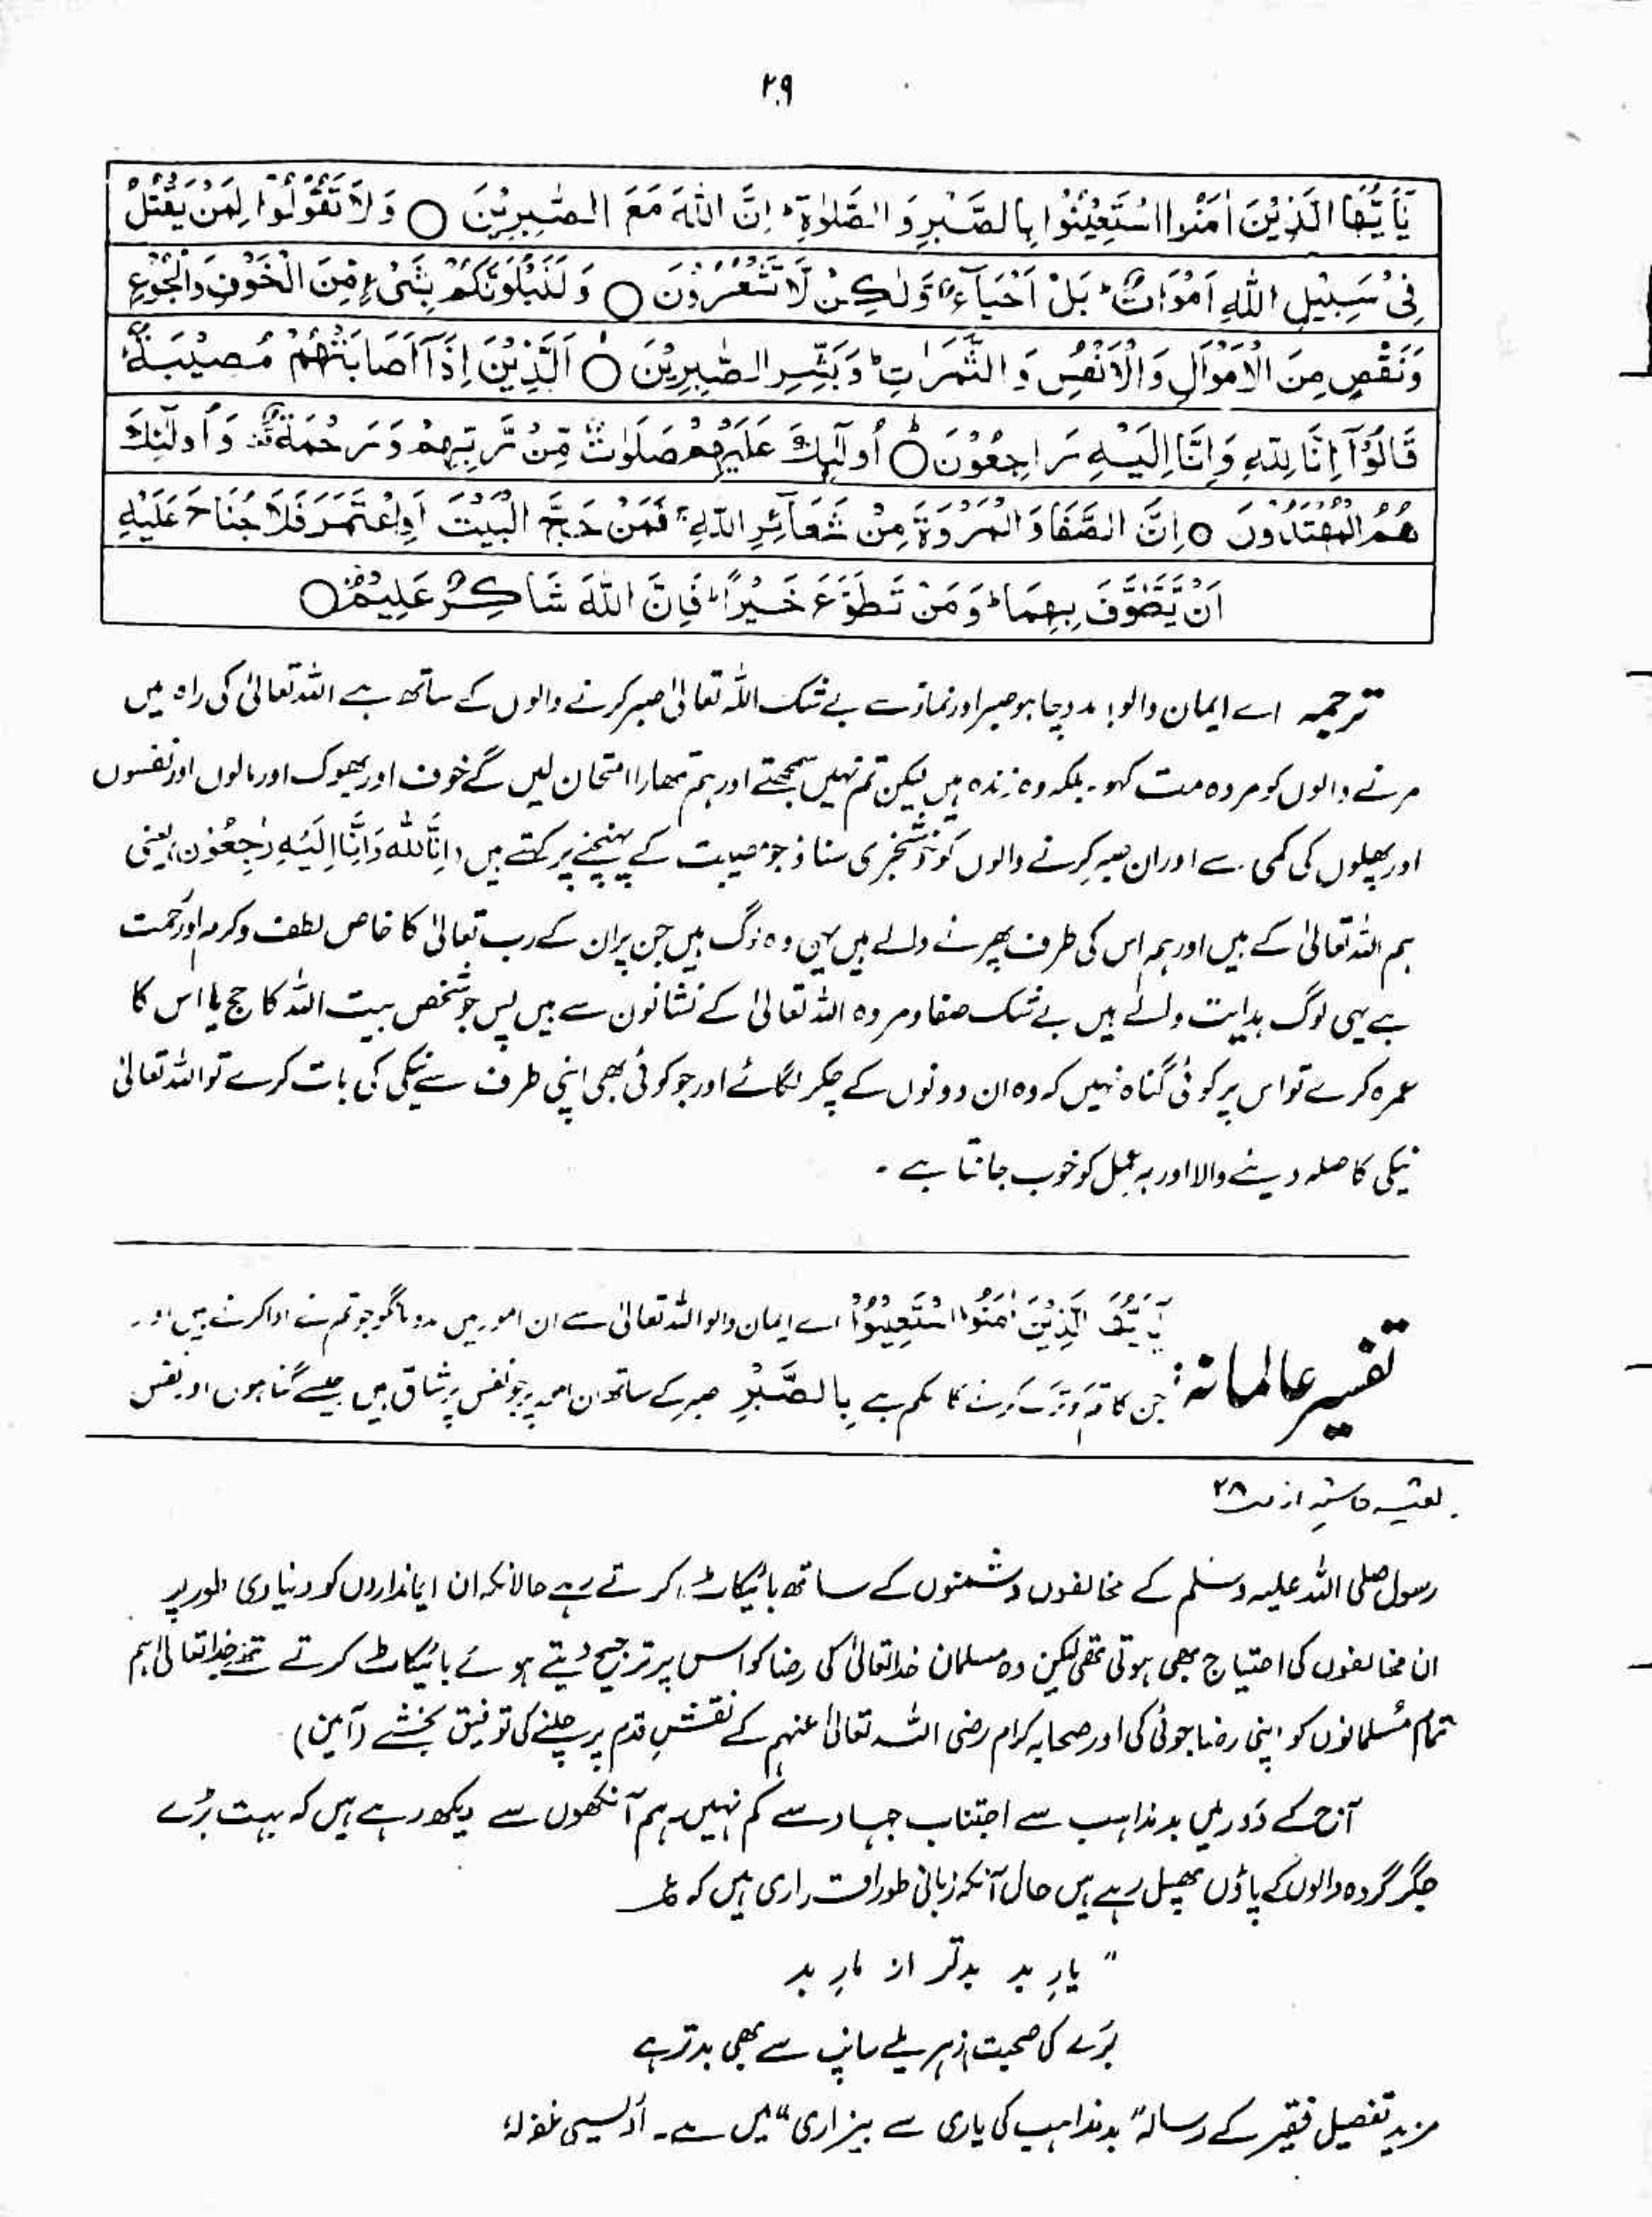 ۲۹
يٰٓاَيُّهَا الَّذِيْنَ اٰمَنُوا اسْتَعِيْنُوْا بِالصَّبْرِ وَ الصَّلٰوةِ ؕ اِنَّ اللّٰهَ مَعَ الصّٰبِرِيْنَ ○ وَ لَا تَقُوْلُوْا لِمَنْ يُّقْتَلُ
فِيْ سَبِيْلِ اللّٰهِ اَمْوَاتٌ ؕ بَلْ اَحْيَآءٌ وَّ لٰكِنْ لَّا تَشْعُرُوْنَ ○ وَ لَنَبْلُوَنَّكُمْ بِشَيْءٍ مِّنَ الْخَوْفِ وَ الْجُوْعِ
وَ نَقْصٍ مِّنَ الْاَمْوَالِ وَ الْاَنْفُسِ وَ الثَّمَرٰتِ ؕ وَ بَشِّرِ الصّٰبِرِيْنَ ○ اَلَّذِيْنَ اِذَآ اَصَابَتْهُمْ مُّصِيْبَةٌ
قَالُوْٓا اِنَّا لِلّٰهِ وَ اِنَّآ اِلَيْهِ رَاجِعُوْنَ ○ اُولٰٓئِكَ عَلَيْهِمْ صَلَوٰتٌ مِّنْ رَّبِّهِمْ وَ رَحْمَةٌ وَ اُولٰٓئِكَ
هُمُ الْمُهْتَدُوْنَ ○ اِنَّ الصَّفَا وَ الْمَرْوَةَ مِنْ شَعَآئِرِ اللّٰهِ ۚ فَمَنْ حَجَّ الْبَيْتَ اَوِ اعْتَمَرَ فَلَا جُنَاحَ عَلَيْهِ
اَنْ يَّطَّوَّفَ بِهِمَا ؕ وَ مَنْ تَطَوَّعَ خَيْرًا ؕ فَاِنَّ اللّٰهَ شَاكِرٌ عَلِيْمٌ ○
ترجمہ اے ایمان والو! مدد چاہو صبر اور نماز سے بے شک اللہ تعالیٰ صبر کرنے والوں کے ساتھ ہے اللہ تعالیٰ کی راہ میں
مرنے والوں کو مردہ مت کہو۔ بلکہ وہ زندہ ہیں لیکن تم نہیں سمجھتے اور ہم تمہارا امتحان لیں گے خوف اور بھوک اور مالوں اور نفسوں
اور پھلوں کی کمی سے اور ان صبر کرنے والوں کو خوشخبری سناؤ جو مصیبت کے پہنچنے پر کہتے ہیں (اِنَّا لِلّٰہِ وَاِنَّا اِلَیْہِ رٰجِعُوْن) یعنی
ہم اللہ تعالیٰ کے ہیں اور ہم اس کی طرف پھرنے والے ہیں یہی وہ لوگ ہیں جن پر ان کے رب تعالیٰ کا خاص لطف و کرم اور رحمت
ہے یہی لوگ ہدایت والے ہیں بے شک صفا و مروہ اللہ تعالیٰ کے نشانوں سے ہیں پس جو شخص بیت اللہ کا حج یا اس کا
عمرہ کرے تو اس پر کوئی گناہ نہیں کہ وہ ان دونوں کے چکر لگائے اور جو کوئی بھی اپنی طرف سے نیکی کی بات کرے تو اللہ تعالیٰ
نیکی کا صلہ دینے والا اور ہر عمل کو خوب جانتا ہے ۔
تفسیر عالمانہ: يٰٓاَيُّهَا الَّذِيْنَ اٰمَنُوا اسْتَعِيْنُوْا اے ایمان والو اللہ تعالیٰ سے ان امور میں مدد مانگو جو تم نے ادا کرنے ہیں اور
جن کا ترک کرنے کا حکم ہے بِالصَّبْرِ صبر کے ساتھ ان امور پر جو نفس پر شاق ہیں جیسے گناہوں اور نفس
بقیہ حاشیہ از ص ۲۸
رسول صلی اللہ علیہ وسلم کے مخالفوں دشمنوں کے ساتھ بائیکاٹ کرتے رہے حالانکہ ان ایمانداروں کو دنیاوی طور پر
ان مخالفوں کی احتیاج بھی ہوتی تھی لیکن وہ مسلمان خدا تعالیٰ کی رضا کو اس پر ترجیح دیتے ہوئے بائیکاٹ کرتے تھے خدا تعالیٰ ہم
تمام مسلمانوں کو اپنی رضا جوئی کی اور صحابہ کرام رضی اللہ تعالیٰ عنہم کے نقش قدم پر چلنے کی توفیق بخشے (آمین)
آج کے دَور میں بد مذاہب سے اجتناب جہاد سے کم نہیں۔ ہم آنکھوں سے دیکھ رہے ہیں کہ بہت بڑے
جگر گردہ والوں کے پاؤں پھسل رہے ہیں حال آنکہ زبانی طور اقراری ہیں کہ ؏
" یارِ بد بدتر از مارِ بد
بُرے کی صحبت زہریلے سانپ سے بھی بدتر ہے
مزید تفصیل فقیر کے رسالہ "بد مذاہب کی یاری سے بیزاری" میں ہے۔ اُویسی غفرلہٗ